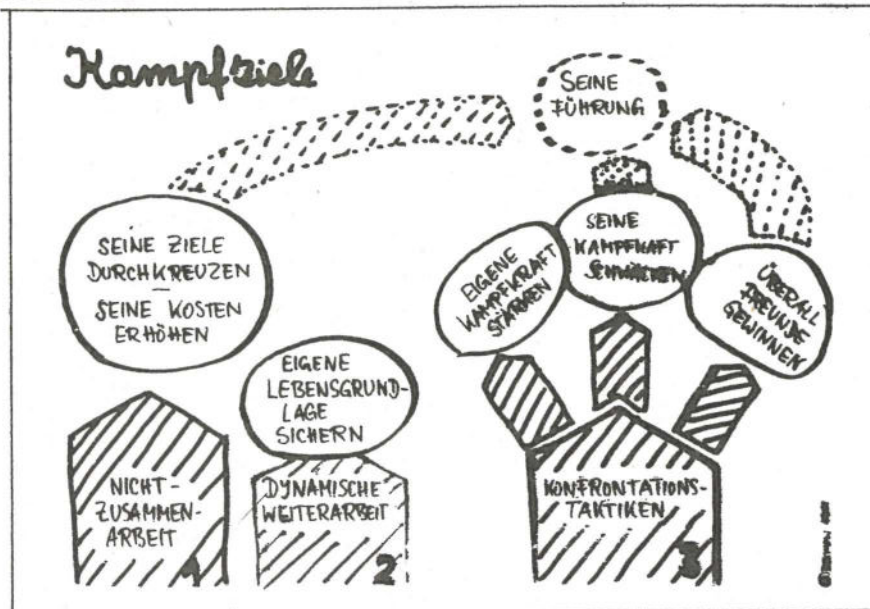 Kampfziele
SEINE
FÜHRUNG
SEINE ZIELE
DURCHKREUZEN
—
SEINE KOSTEN
ERHÖHEN
EIGENE
LEBENSGRUND-
LAGE
SICHERN
EIGENE
KAMPFKRAFT
STÄRKEN
SEINE
KAMPFKRAFT
SCHWÄCHEN
ÜBERALL
FREUNDE
GEWINNEN
NICHT-
ZUSAMMEN-
ARBEIT
1
DYNAMISCHE
WEITERARBEIT
2
KONFRONTATIONS-
TAKTIKEN
3